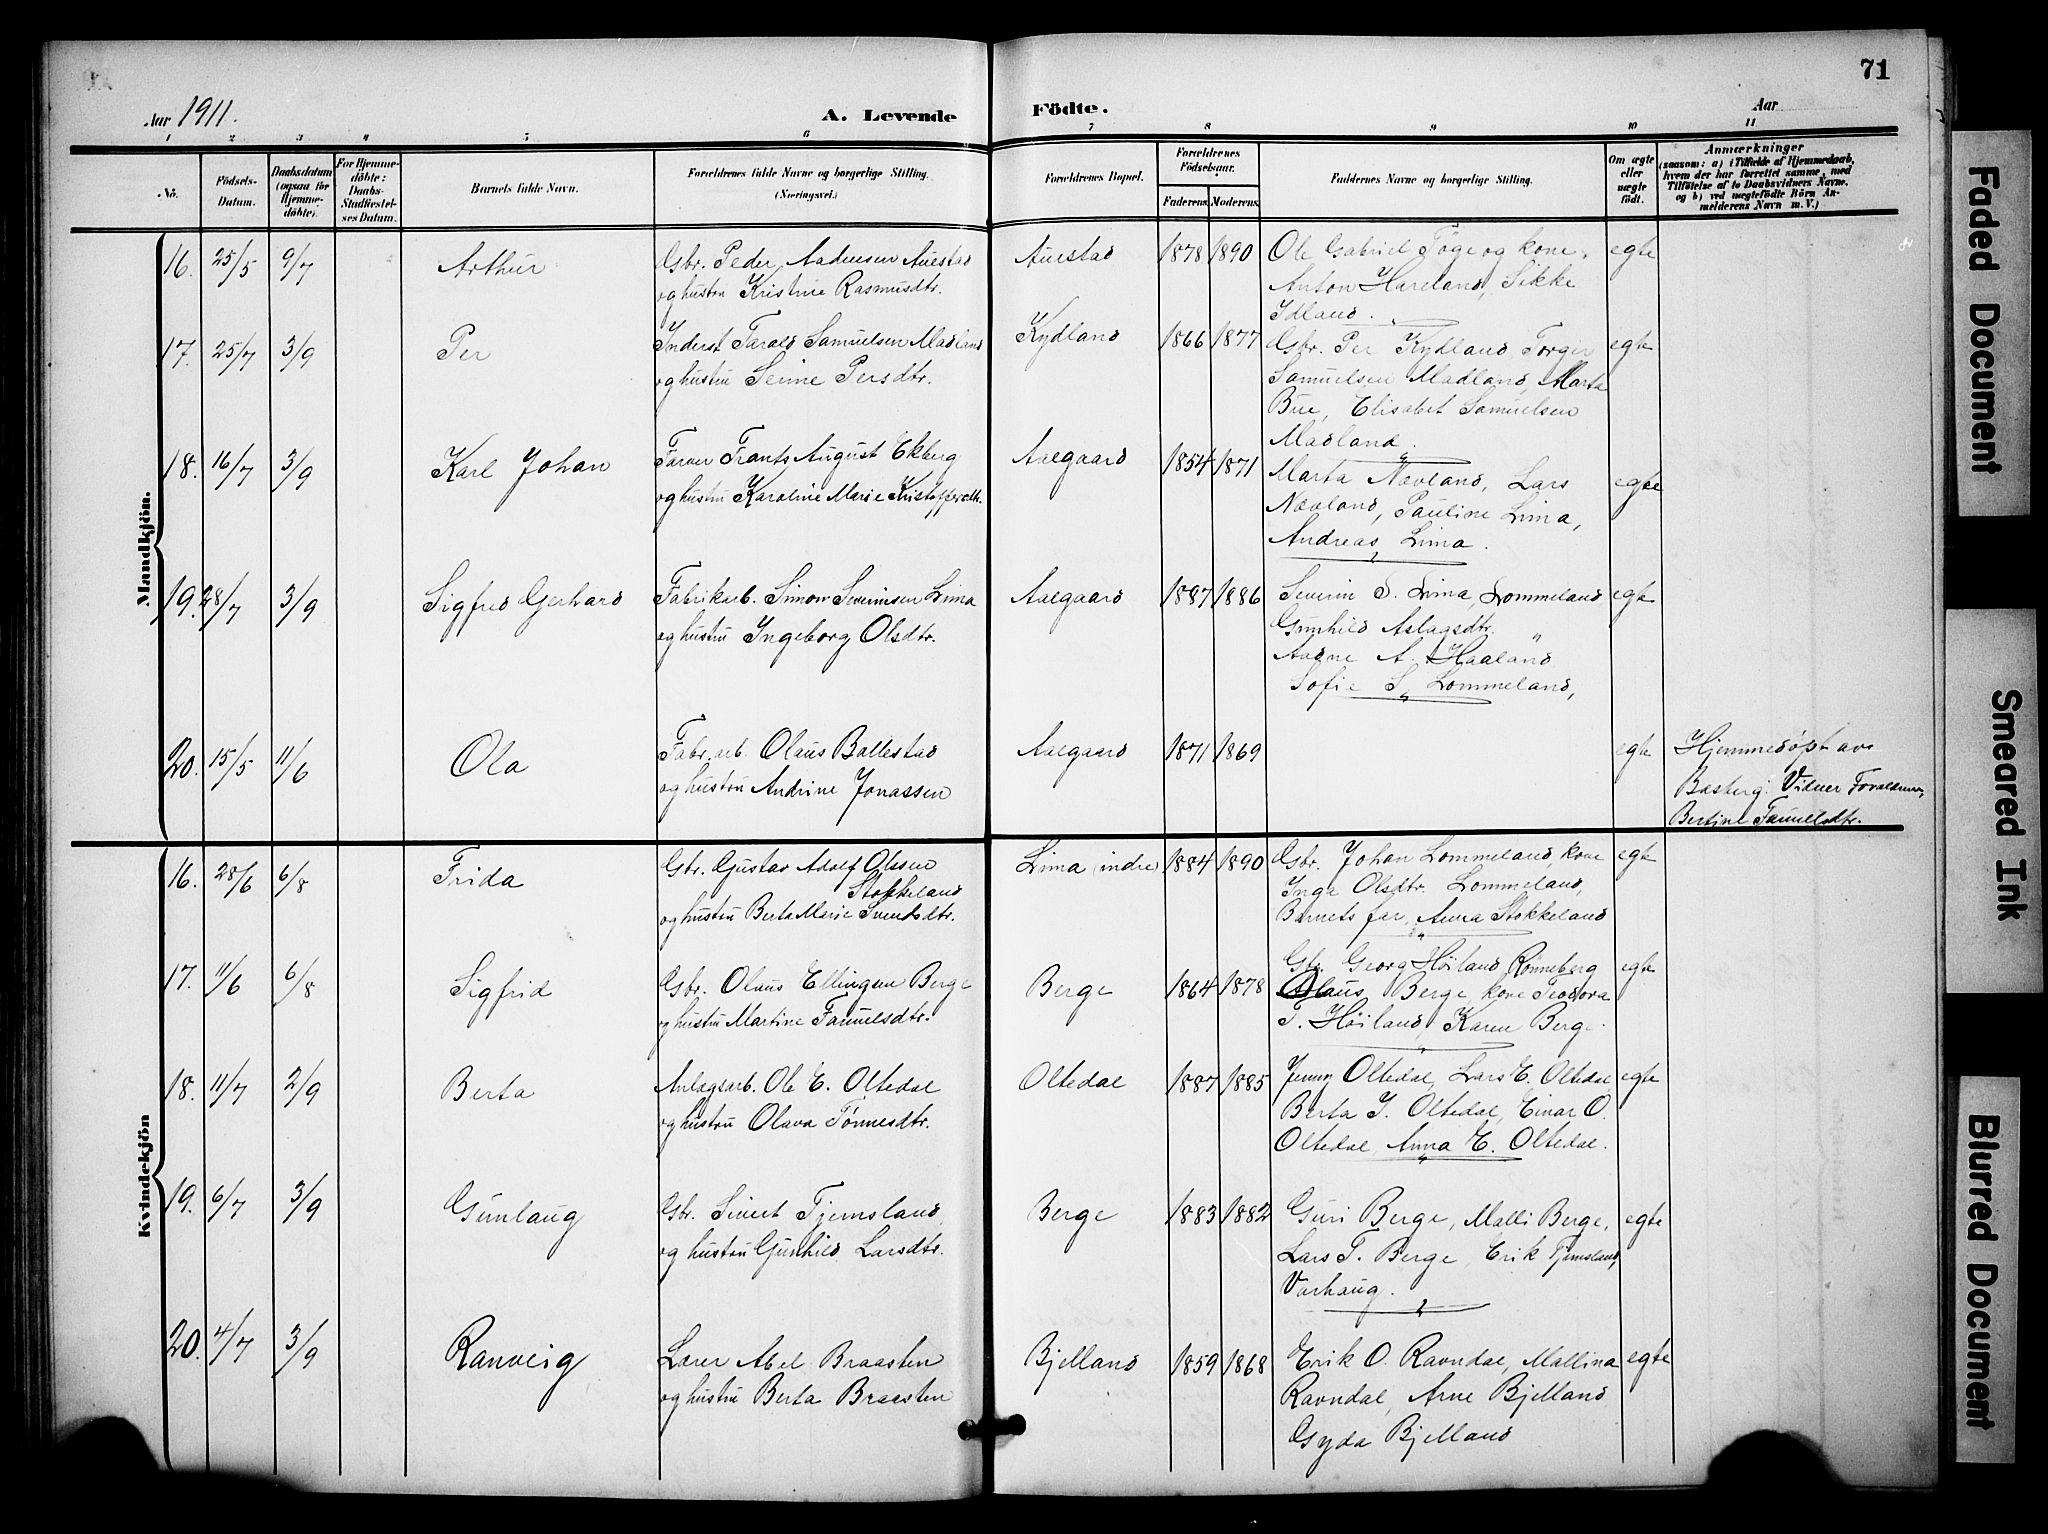 71
Aar 1911.
A. Levende
Födte.
Aar
1 2 3 4 5 6 7 8 9 10 11
No.
Födsels-
Datum.
Daabsdatum
(ogsaa for
Hjemme-
döbte).
For Hjemme-
döbte:
Daabs-
Stadfæstel-
ses Datum.
Barnets fulde Navn.
Forældrenes fulde Navne og borgerlige Stilling.
(Næringsvei.)
Forældrenes Bopæl.
Forældrenes
Födselsaar.
Faderens. Moderens.
Faddernes Navne og borgerlige Stilling.
Om ægte
eller
uægte
födt.
Anmærkninger
(saasom: a) i Tilfælde af Hjemmedaab,
hvem der har forrettet samme, med
Tilföielse af to Daabsvidners Navne.
og b) ved uægtefödte Börn An-
melderens Navn m. V.)
Mandkjön.
16. 25/5 9/7 Arthur Gbr. Peder Aadnesen Auestad Auestad 1878 1890 Ole Gabriel Töge og kone, egte
og hustru Kristine Rasmusdtr. Anton Hareland, Sikke
Idland.
17. 25/7 3/9 Per Inderst Tarald Samuelsen Madland Kydland 1866 1877 Gbr. Per Kydland Torger egte
og hustru Serine Persdtr. Samuelsen Madland, Marta
Bue, Elisabet Samuelsen
Madland.
18. 16/7 3/9 Karl Johan Farver Frants August Ekberg Aalgaard 1854 1871 Marta Nævland, Lars egte
og hustru Karoline Marie Kristoffersdtr. Nævland, Pauline Lima,
Andreas Lima.
19. 28/7 3/9 Sigfred Gerhard Fabrikarb. Simon Severinsen Lima Aalgaard 1887 1886 Severin S. Lima, Lommeland egte
og hustru Ingeborg Olsdtr. Gunhild Aslagsdtr. "
Aadne A. Haaland
Sofie S. Lommeland,
20. 15/5 11/6 Ola Fabr. arb. Olaus Ballestad Aalgaard 1871 1869 egte Hjemmedøpt av
og hustru Andrine Jonassen Basberg. Vidner Forældrene,
Bertine Samuelsdtr.
Kvindekjön
16. 28/6 6/8 Frida Gbr. Gustav Adolf Olsen Lima (indre) 1884 1890 Gbr. Johan Lommeland, kone egte
Stokkeland Inga Olsdtr. Lommeland,
og hustru Berta Marie Svendsdtr. Barnets far, Anna Stokkeland
17. 11/6 6/8 Sigfrid Gbr. Olaus Ellingsen Berge Berge 1864 1878 Gbr. Georg Høiland Rönneberg egte
og hustru Martine Samuelsdtr. Olaus Berge, kone Teodora
T. Høiland, Karen Berge.
18. 11/7 2/9 Berta Anlægsarb. Ole E. Oltedal Oltedal 1887 1885 Jenny Oltedal, Lars E. Oltedal, egte
og hustru Olava Tønnesdtr. Berta J. Oltedal, Einar O.
Oltedal, Anna E. Oltedal.
19. 6/7 3/9 Gunlaug Gbr. Sivert Tjemsland Berge 1883 1882 Guri Berge, Malli Berge, egte
og hustru Gunhild Larsdtr. Lars T. Berge, Erik Tjemsland,
Varhaug.
20. 4/7 3/9 Ranveig Lærer Abel Braasten Bjelland 1859 1868 Erik O. Ravndal, Mallina egte
og hustru Berta Braasten Ravndal, Arne Bjelland
Gyda Bjelland
Faded Document
Smeared Ink
Blurred Document